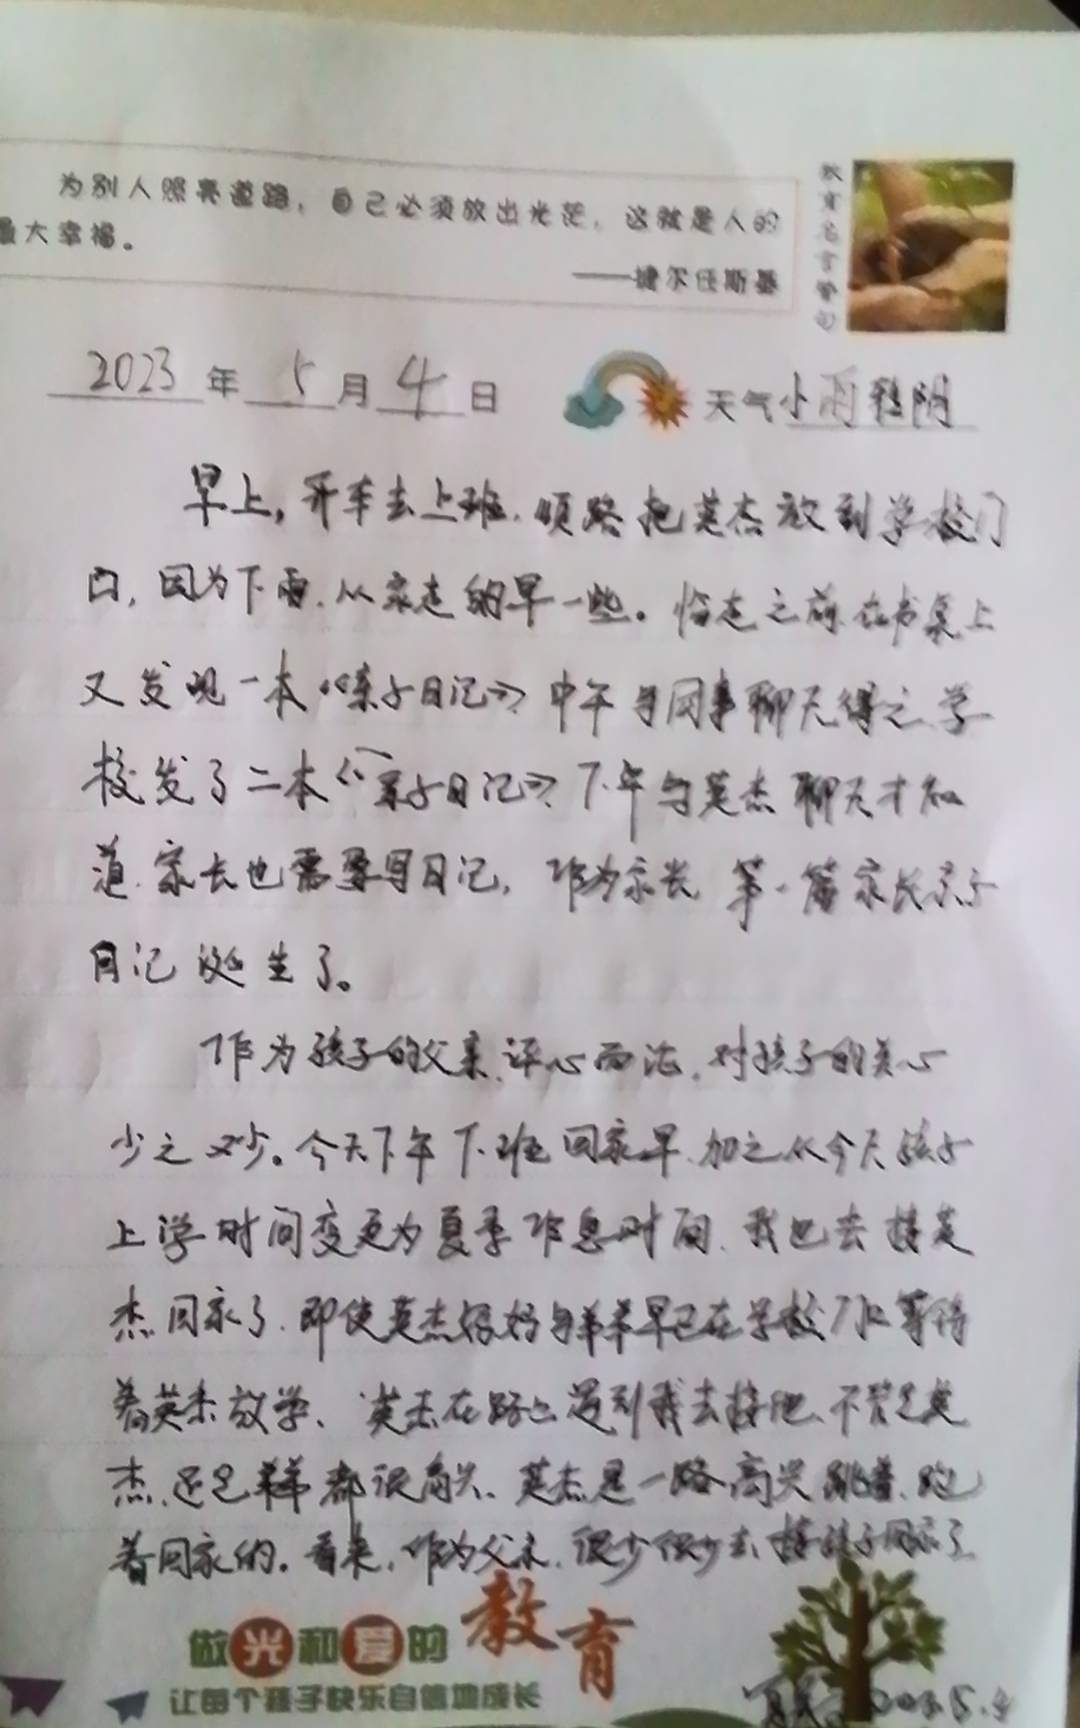 为别人照亮道路，自己必须放出光芒，这就是人的
最大幸福。
——捷尔任斯基
教育名言警句
2023年5月4日 天气小雨转阴
早上，开车去上班，顺路把英杰放到学校门
口，因为下雨，从家走的早一些。临走之前在书桌上
又发现一本《亲子日记》，中午与同事聊天得之，学
校发了二本《亲子日记》，下午与英杰聊天才知
道，家长也需要写日记，作为家长，第一篇家长亲子
日记诞生了。
作为孩子的父亲，评心而论，对孩子的关心
少之又少。今天下午下班回家早，加之从今天孩子
上学时间变更为夏季作息时间，我也去接英
杰回家了，即使英杰妈妈与弟弟早已在学校门口等待
着英杰放学、英杰在路上遇到我去接他，不管是英
杰，还是弟弟都很高兴、英杰是一路高兴跳着、跑
着回家的。看来，作为父亲，很少很少去接孩子回家了
做光和爱的教育
让每个孩子快乐自信地成长
2023.5.4